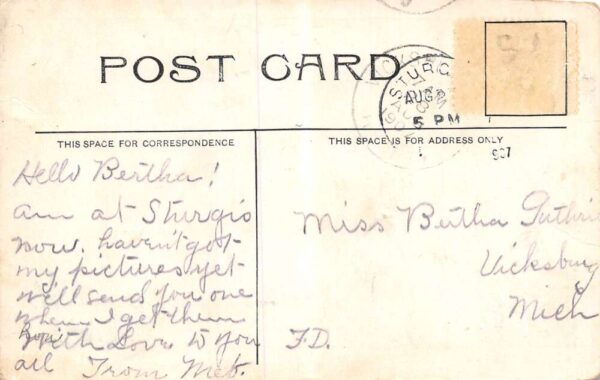 POST CARD
STURG
AUG
5 PM
1907
907
THIS SPACE FOR CORRESPONDENCE
THIS SPACE IS FOR ADDRESS ONLY
Hello Bertha!
am at Sturgis
now, haven't got
my pictures yet
will send you one
when I get them
With Love to you
all From Meb.
Miss Bertha Guthrie
Vicksburg
Mich
F.D.